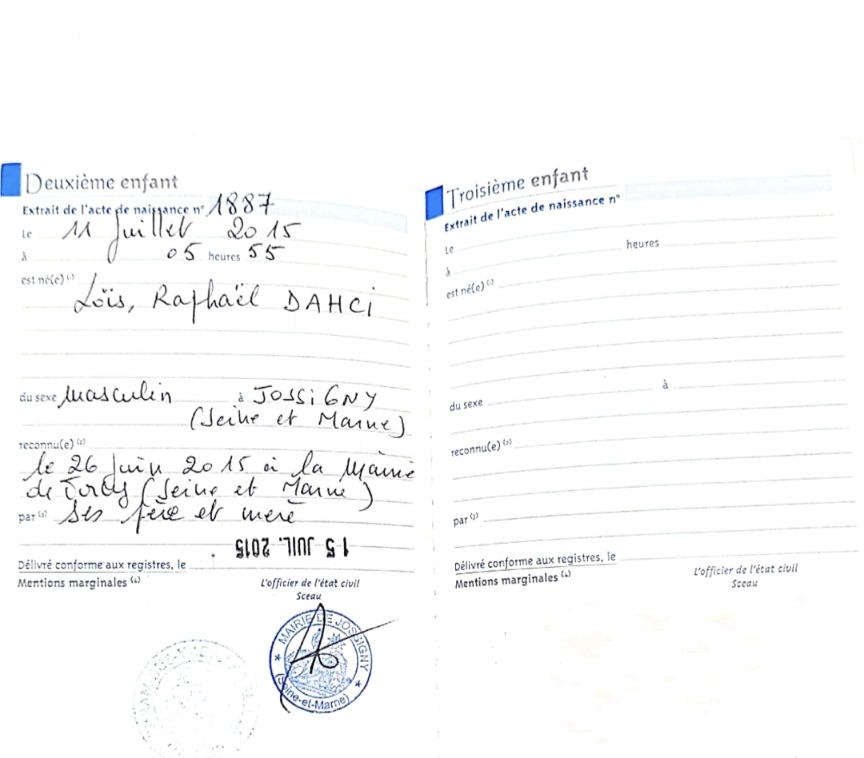 Deuxième enfant
Extrait de l'acte de naissance n° 1887
Le 11 Juillet 2015
à 05 heures 55
est né(e) (1)
Loïs, Raphaël DAHCi
du sexe Masculin à JOSSIGNY
(Seine et Marne)
reconnu(e) (2)
le 26 Juin 2015 à la Mairie
de Torcy (Seine et Marne)
par (3) Ses père et mère
15 JUIL. 2015
Délivré conforme aux registres, le
Mentions marginales (4) L'officier de l'état civil
Sceau
MAIRIE DE JOSSIGNY
(Seine-et-Marne)
Troisième enfant
Extrait de l'acte de naissance n°
Le
à heures
est né(e) (1)
du sexe à
reconnu(e) (2)
par (3)
Délivré conforme aux registres, le
Mentions marginales (4) L'officier de l'état civil
Sceau